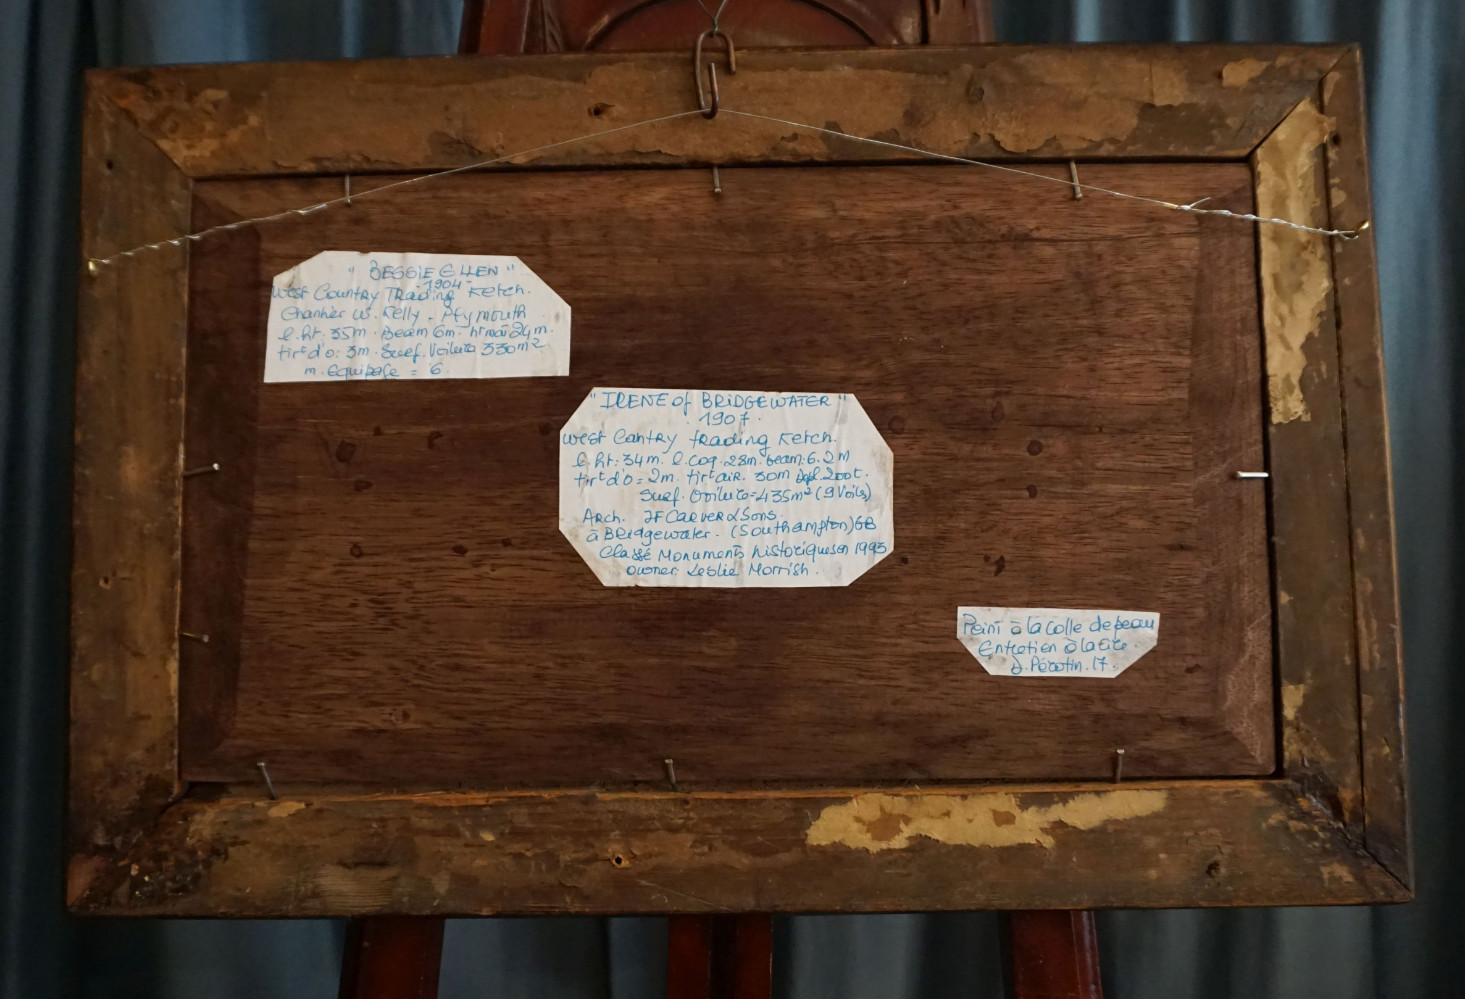 " BESSIE ELLEN "
- 1904 -
West Country Trading Ketch.
Chantier W. Kelly - Plymouth
l. ht: 35m. Beam 6m - ht mât 24m.
tirt d'o: 3m. Surf. Voilure 330m2
m. Equipage = 6.
" IRENE of BRIDGEWATER "
. 1907 .
West Cantry trading Ketch.
l. ht: 34m. l. coq. 28m. beam. 6.2m
tirt d'o = 2m. tirt air. 30m Depl. 200t.
Surf. Voilure = 435m2 (9 Voiles)
Arch. JF Carver & Sons.
à Bridgewater - (Southampton) GB
Classé Monuments historiques en 1993
owner Leslie Morrish.
Peint à la colle de peau
Entretien à la cire.
J. Pérotin. 17.